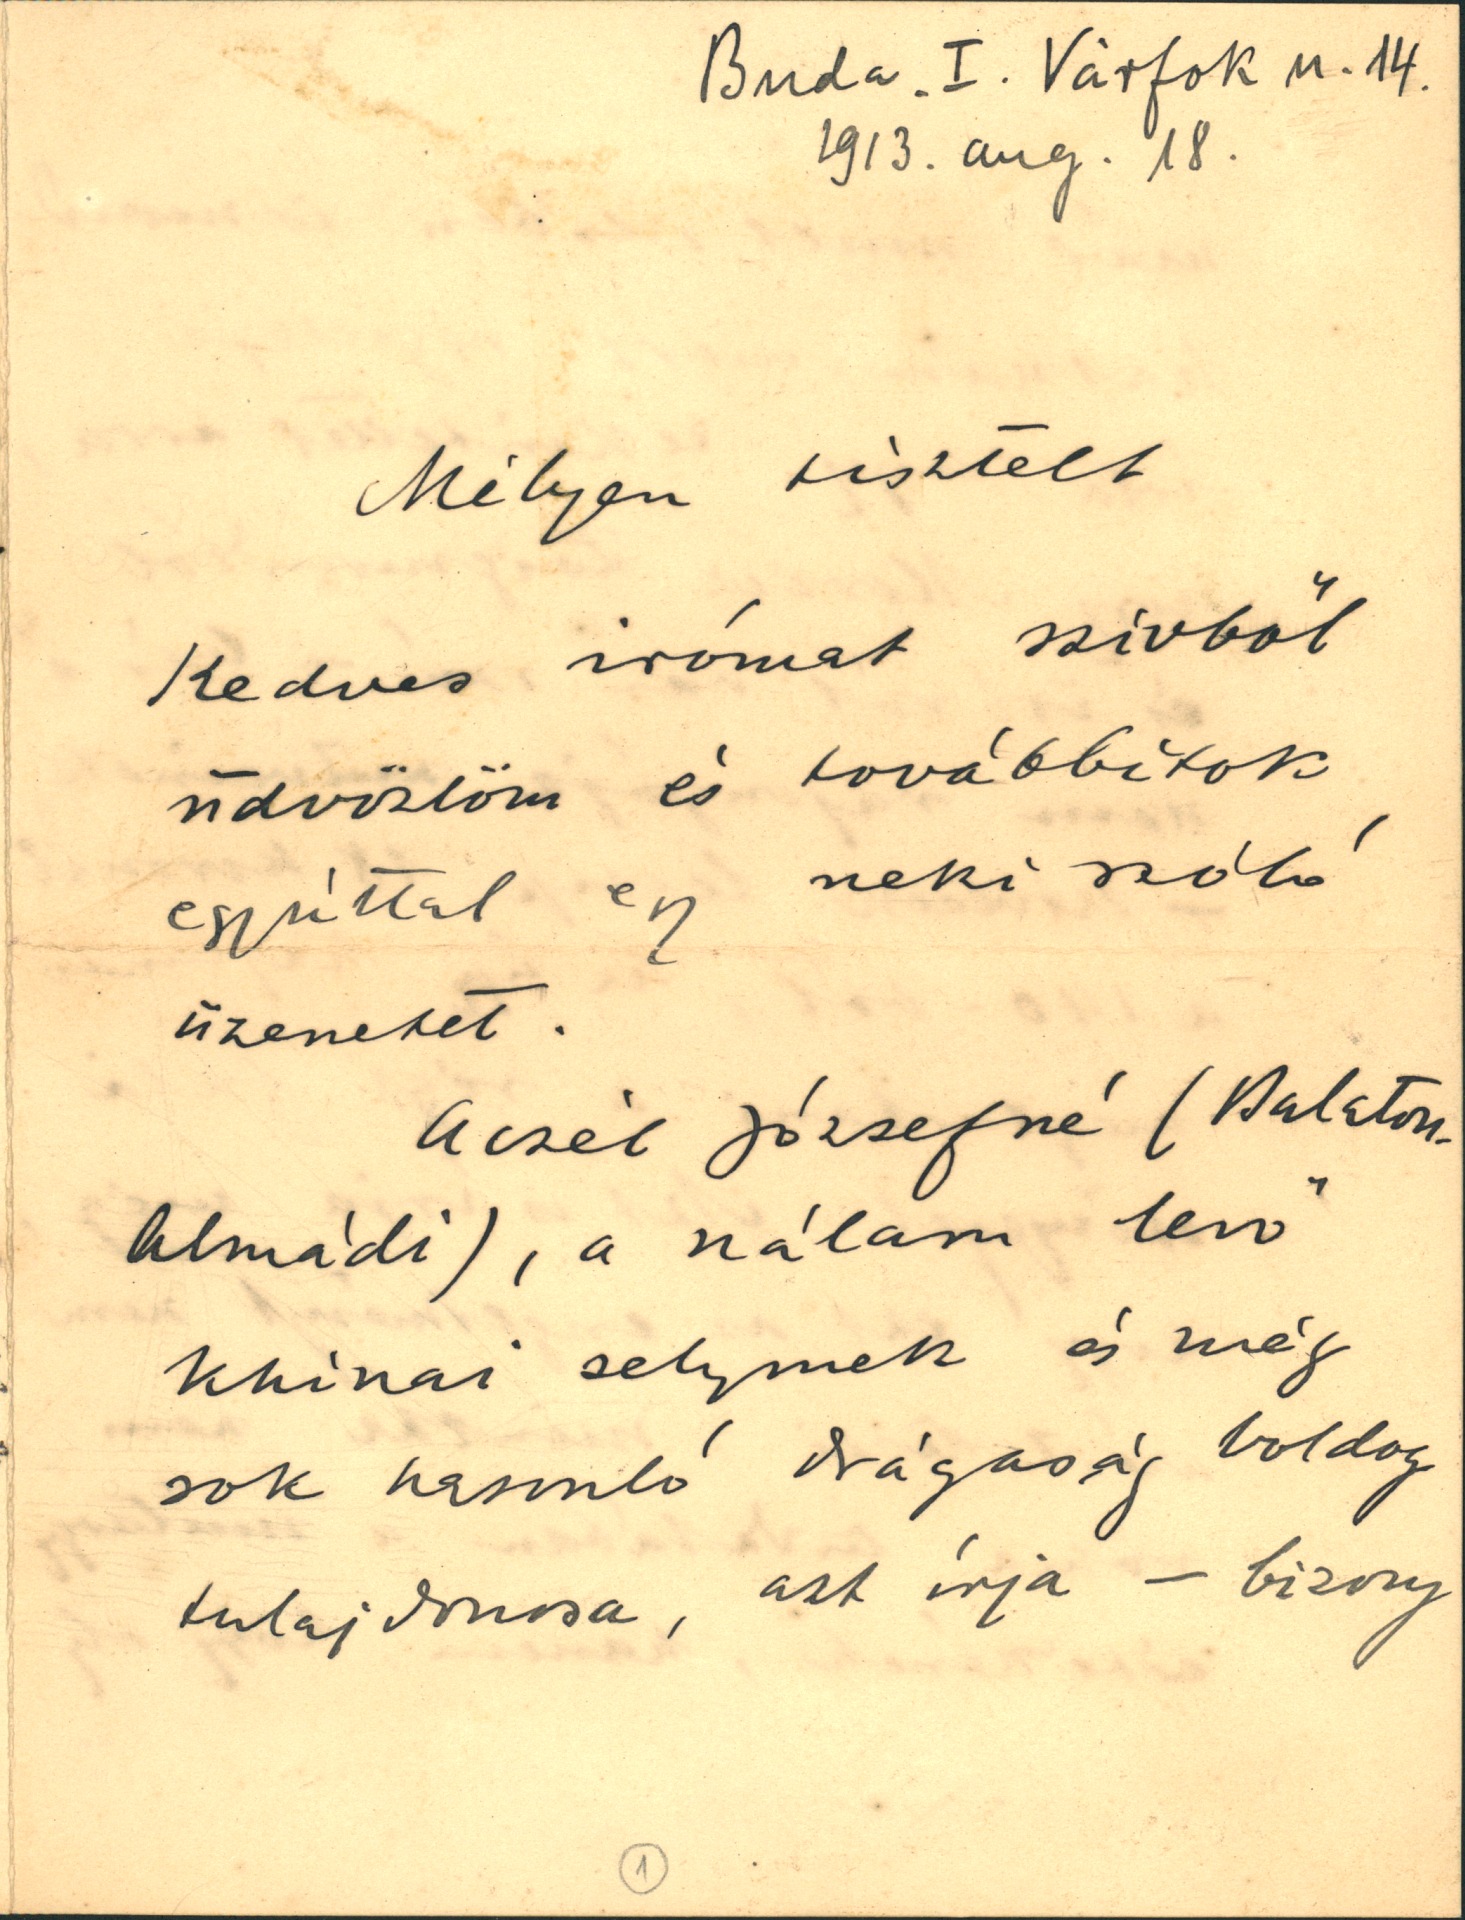 Buda. I. Várfok u. 14.
1913. aug. 18.
Mélyen tisztelt
Kedves irómat szivből
üdvözlöm és továbbitok
egyúttal egy neki szóló
üzenetet.
Aczél Józsefné (Balaton-
Almádi), a nálam levő
khinai selymek és még
sok hasonló drágaság boldog
tulajdonosa, azt írja – bizony
1